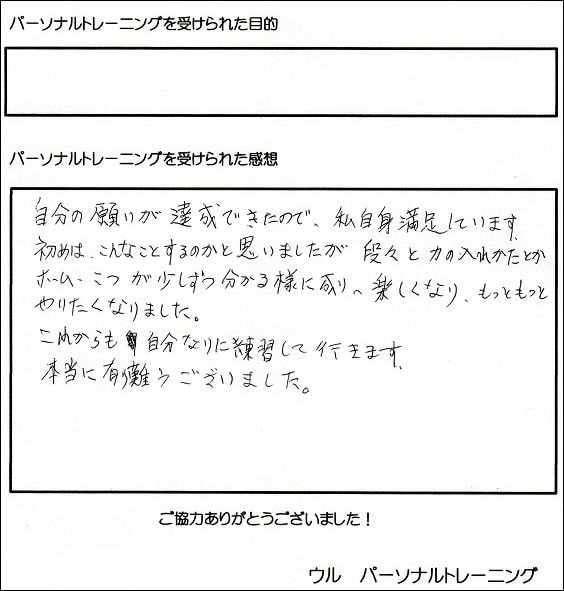 パーソナルトレーニングを受けられた目的
パーソナルトレーニングを受けられた感想
自分の願いが達成できたので、私自身満足しています。
初めは、こんなことするのかと思いましたが 段々と力の入れかたとか
ホーム、こつが少しずつ分かる様に成り、楽しくなり、もっともっと
やりたくなりました。
これからも自分なりに練習して行きます。
本当に有難うございました。
ご協力ありがとうございました！
ウル パーソナルトレーニング